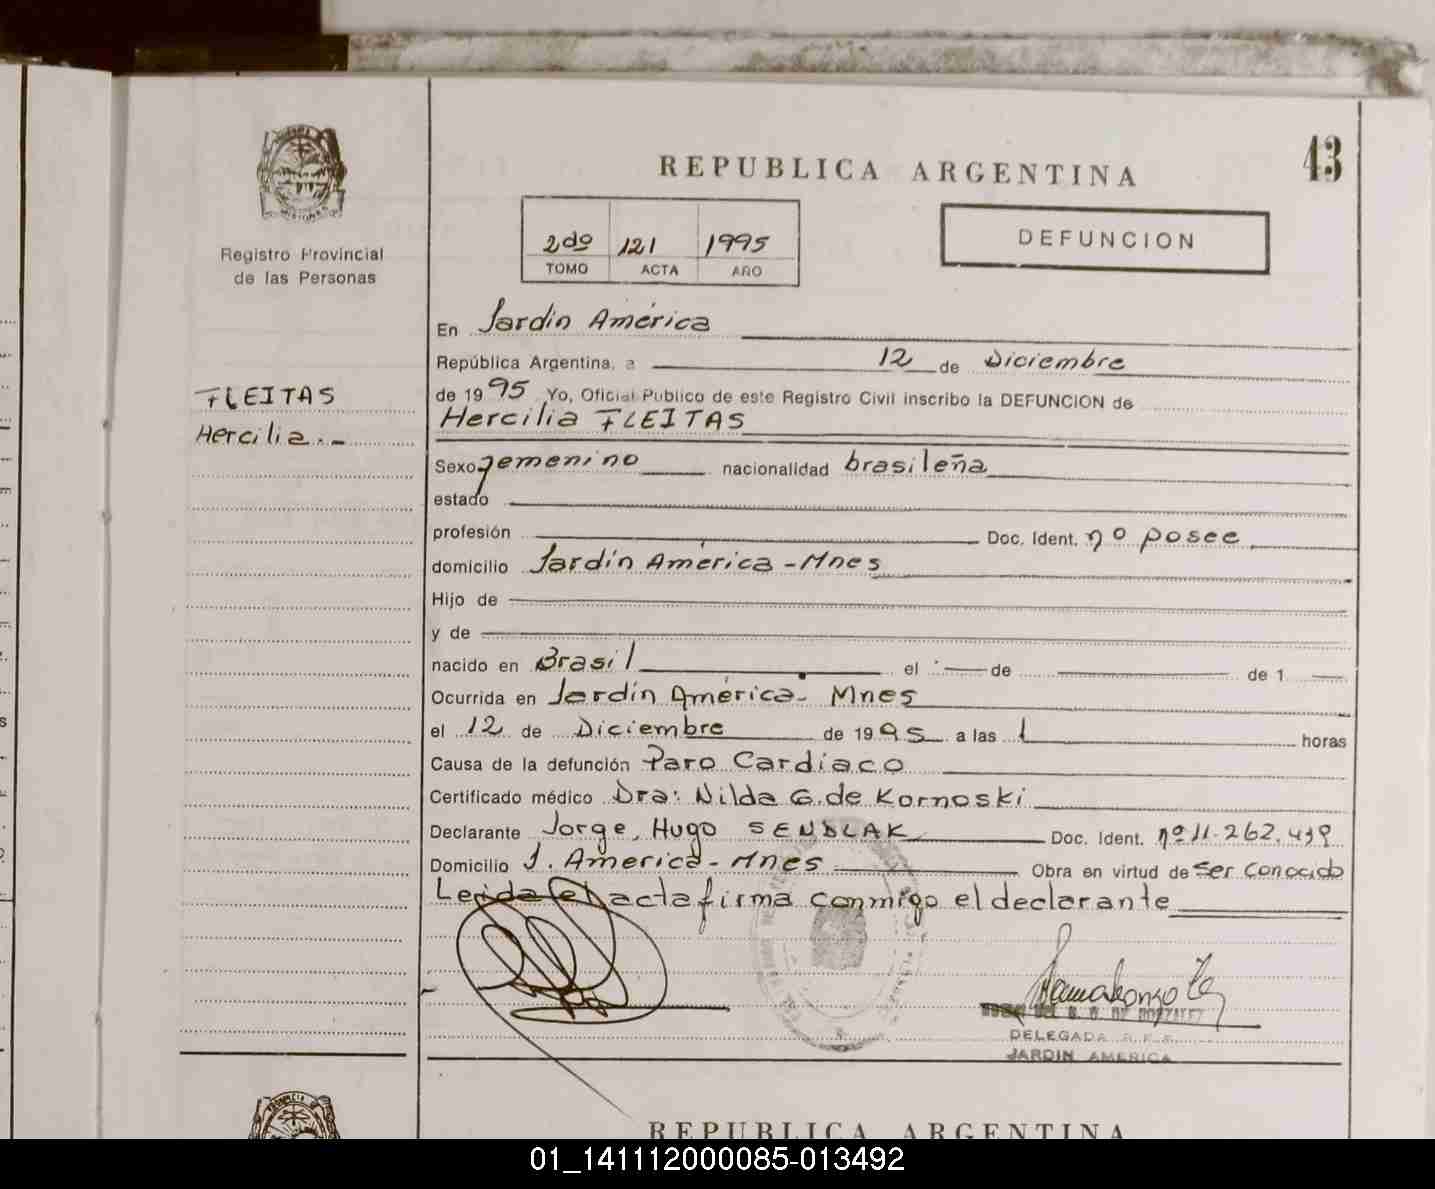 43
REPUBLICA ARGENTINA
Registro Provincial
de las Personas
2do 121 1995
TOMO ACTA AÑO
DEFUNCION
En Jardín América
República Argentina, a 12 de Diciembre
FLEITAS
de 1995 Yo, Oficial Publico de este Registro Civil inscribo la DEFUNCION de
Hercilia FLEITAS
Hercilia.-
Sexo femenino nacionalidad brasileña
estado
profesión Doc. Ident. no posee
domicilio Jardín América - Mnes
Hijo de
y de
nacido en Brasil el de de 1
Ocurrida en Jardín América - Mnes
el 12 de Diciembre de 1995 a las 1 horas
Causa de la defunción Paro Cardiaco
Certificado médico Dra: Nilda G. de Kornoski
Declarante Jorge Hugo SENDLAK Doc. Ident. nº 11.262.
Domicilio J. America - Mnes Obra en virtud de ser conocido
Leída el acta firma conmigo el declarante
DE GONZALEZ
DELEGADA R.P.P.
JARDIN AMERICA
REPUBLICA ARGENTINA
01_141112000085-013492